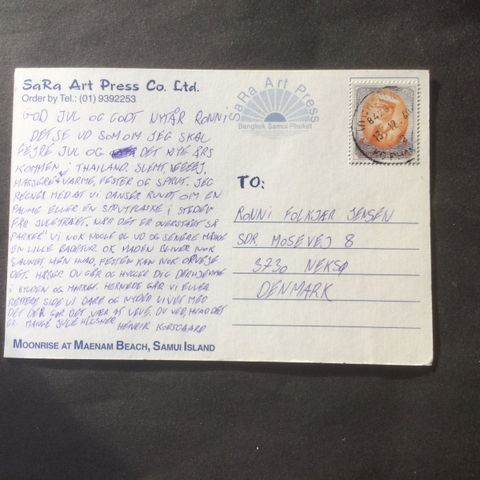 SaRa Art Press Co. Ltd.
Order by Tel.: (01) 9392253
SaRa Art Press
Bangkok Samui Phuket
GOD JUL OG GODT NYTÅR RONNI
DET SE UD SOM OM JEG SKAL
FEJRE JUL OG DET NYE ÅRS
KOMMEN I THAILAND. SLEMT,
VARME, FESTER OG SPRUT. JEG
REGNER MED AT VI DANSER RUNDT OM EN
PALME ELLER EN I STEDET
FOR JULETRÆET, NÅR DET ER OVERSTÅET SÅ
VI NOK NOGLE OG UD OG SENERE MÅSKE
EN LILLE BADETUR. OK MADEN BLIVER NOK
SAVNET MEN HVAD, FESTEN KAN NOK OPVEJE
DET. HÅBER DU GÅR OG HYGGER DIG DERHJEMME
I KULDEN OG MØRKET. HERNEDE GÅR VI ELLER
RETTERE SIDE VI BARE OG NYDER LIVET MED
DET DER GØR DET VÆR AT LEVE. DU VED, HVAD DET
ER. MANGE JULE HILSNER
HENRIK KORSGAARD
MOONRISE AT MAENAM BEACH, SAMUI ISLAND
TO:
RONNI FOLKJÆR JENSEN
SDR. MOSEVEJ 8
3730 NEKSØ
DENMARK